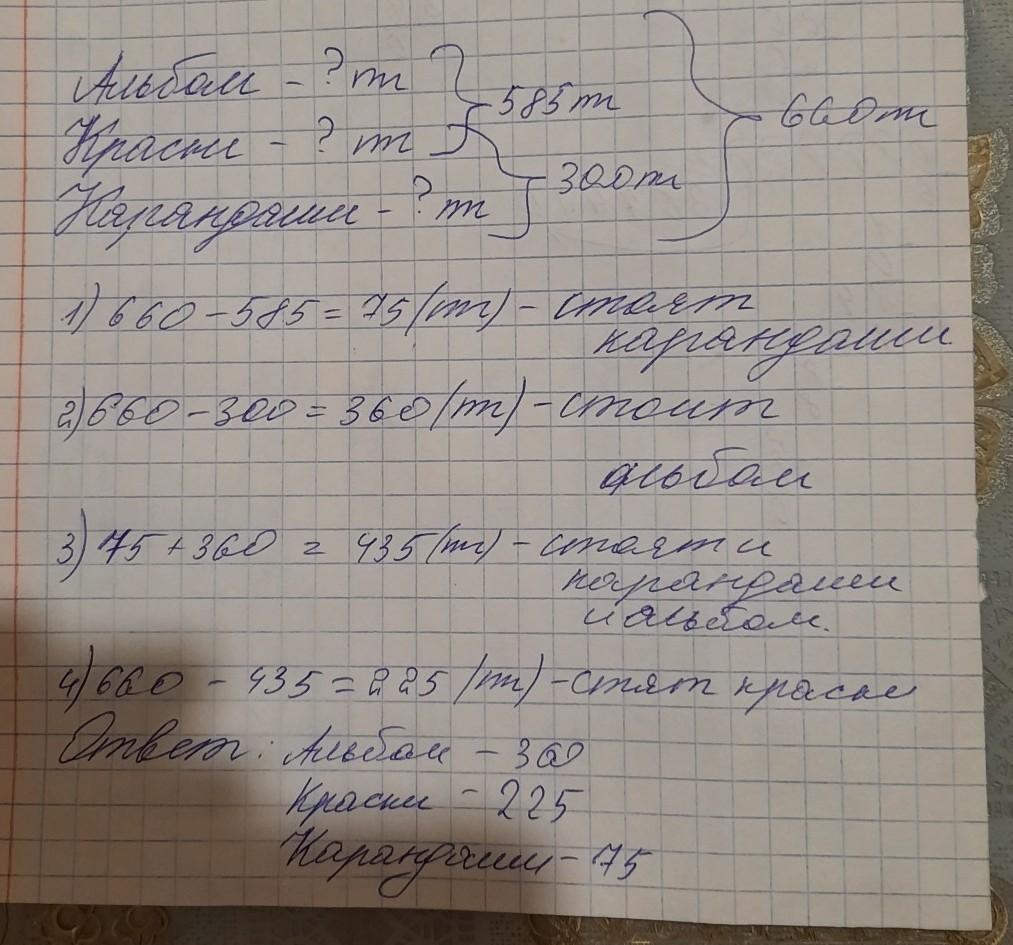 Альбом - ? т
585 т
660 т
Краски - ? т
300 т
Карандаши - ? т
1) 660 - 585 = 75 (т) - стоят
карандаши
2) 660 - 300 = 360 (т) - стоит
альбом
3) 75 + 360 = 435 (т) - стоят и
карандаши
и альбом.
4) 660 - 435 = 225 (т) - стят краски
Ответ: Альбом - 360
Краски - 225
Карандаши - 75